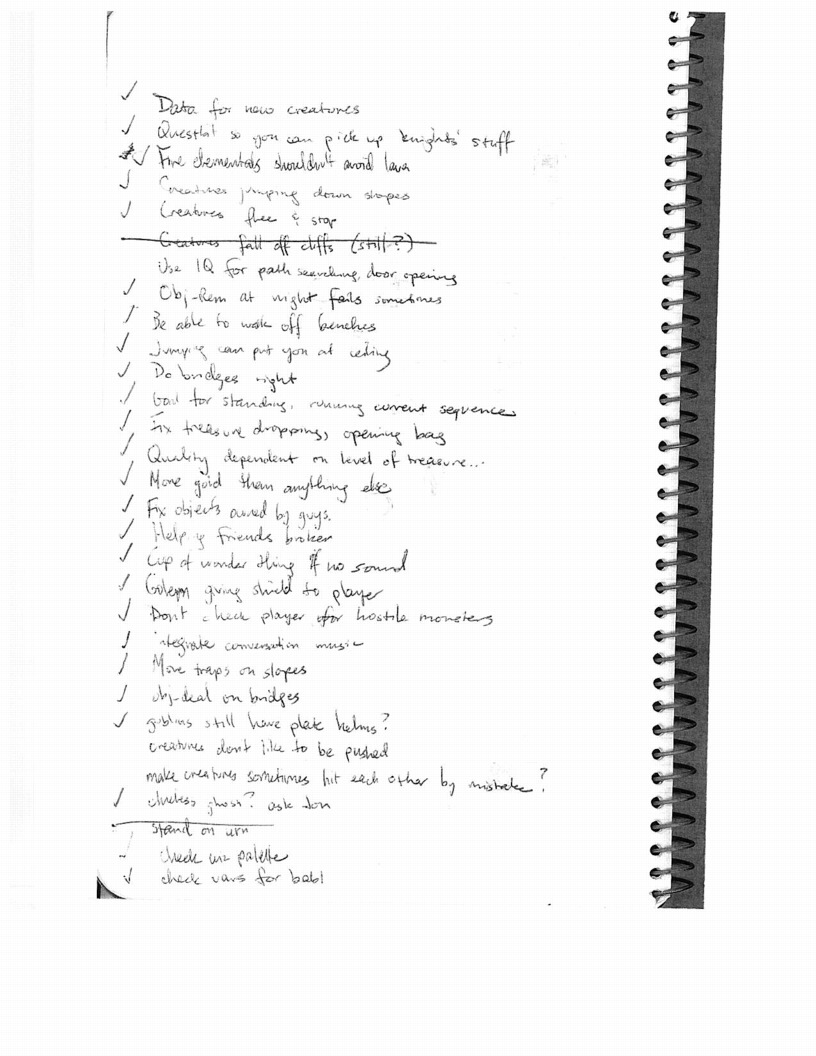 ✓ Data for new creatures
✓ Questbit so you can pick up knights' stuff
✓ Fire elementals shouldn't avoid lava
✓ Creatures jumping down slopes
✓ Creatures flee & stop
Creatures fall off cliffs (still?)
Use IQ for path searching, door opening
✓ Obj-Rem at night fails sometimes
✓ Be able to walk off benches
✓ Jumping can put you at ceiling
✓ Do bridges right
✓ Goal for standing, running current sequence
✓ Fix treasure dropping, opening bag
✓ Quality dependent on level of treasure...
✓ More gold than anything else
✓ Fix objects owned by guys.
✓ Help friends broker
✓ Cup of wonder thing if no sound
✓ Golem giving shield to player
✓ Don't check player for hostile monsters
✓ integrate conversation music
✓ Move traps on slopes
✓ obj-deal on bridges
✓ goblins still have plate helms?
creatures don't like to be pushed
make creatures sometimes hit each other by mistake?
✓ clueless ghost? ask Jon
stand on urn
✓ check palette
✓ check vars for babl